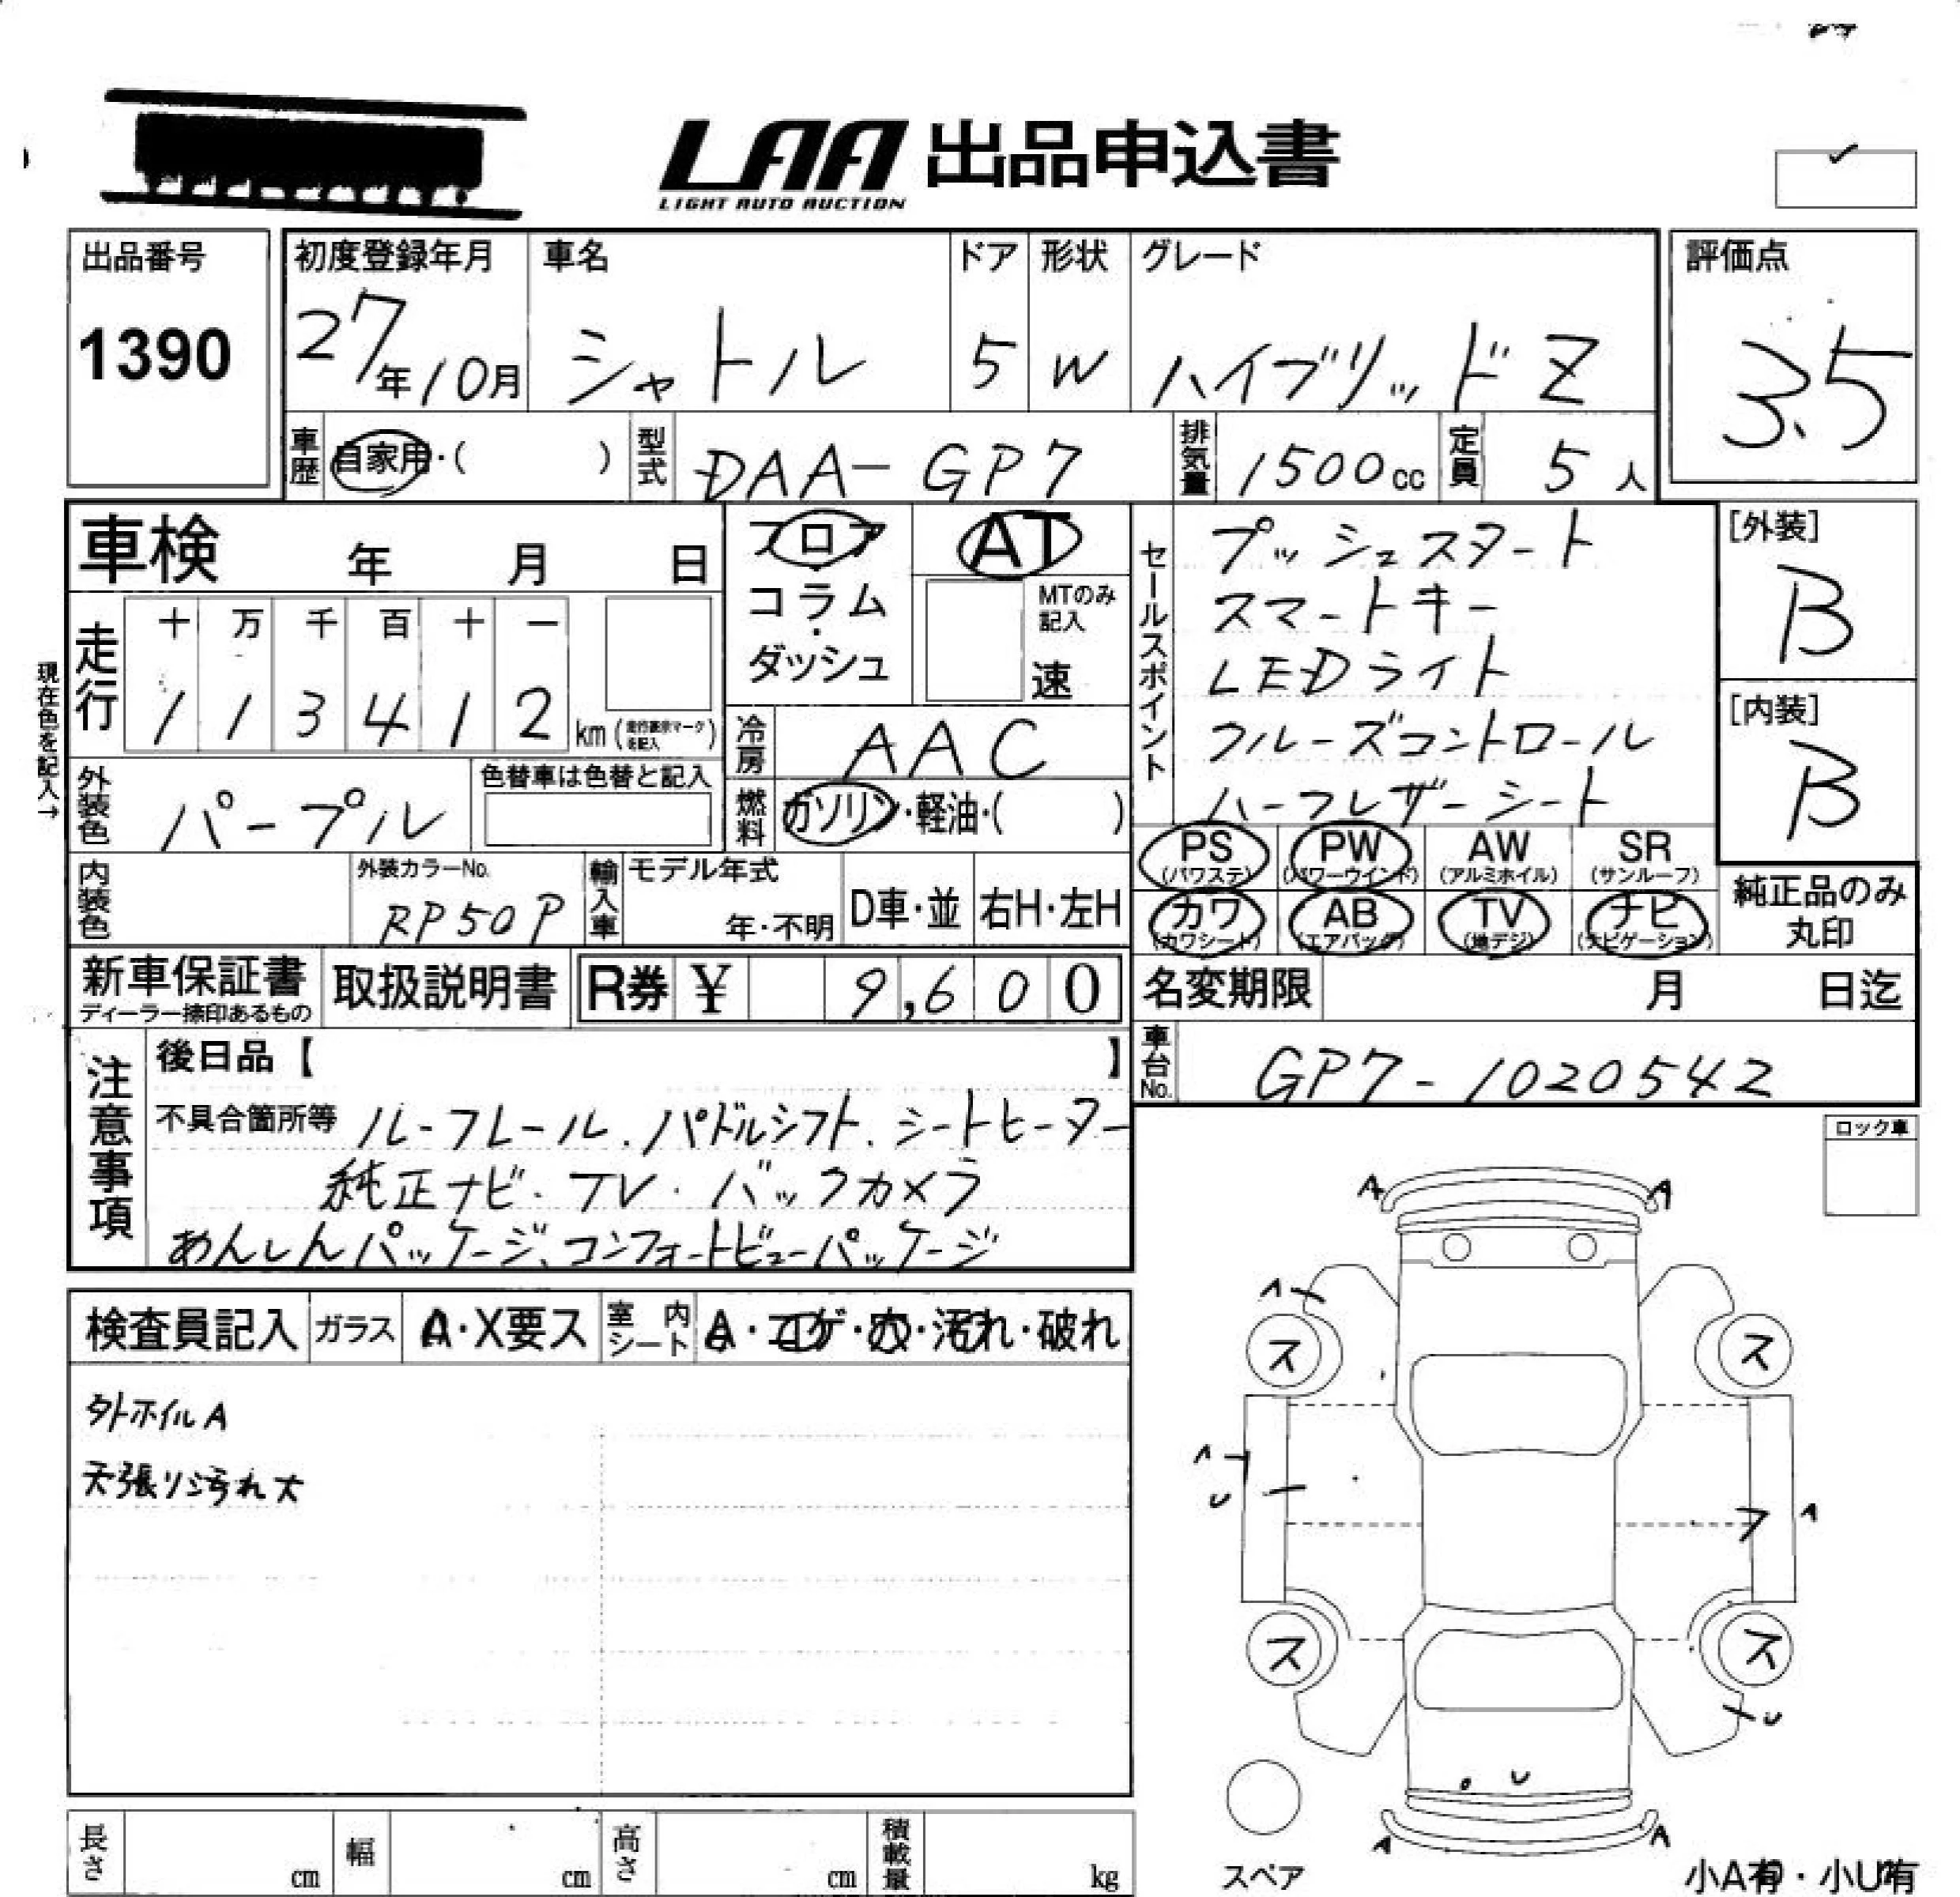 LAA 出品申込書
LIGHT AUTO AUCTION
出品番号
1390
初度登録年月 車名 ドア 形状 グレード
27年10月 シャトル 5 W ハイブリッドZ
評価点
3.5
車歴 自家用・( ) 型式 DAA-GP7 排気量 1500cc 定員 5人
車検 年 月 日
フロア・コラム・ダッシュ
AT
MTのみ記入
速
セールスポイント
プッシュスタート
スマートキー
LEDライト
クルーズコントロール
ハーフレザーシート
[外装]
B
[内装]
B
現在色を記入→
走行 十 万 千 百 十 一
1 1 3 4 1 2 km (走行表示マークを記入)
冷房 AAC
燃料 ガソリン・軽油・( )
外装色 パープル
色替車は色替と記入
PS (パワステ) PW (パワーウインド) AW (アルミホイル) SR (サンルーフ)
カワ (カワシート) AB (エアバッグ) TV (地デジ) ナビ (ナビゲーション)
純正品のみ丸印
内装色 外装カラーNo. RP50P
輸入車 モデル年式 年・不明 D車・並 右H・左H
新車保証書 ディーラー捺印あるもの 取扱説明書 R券 ¥ 9,600
名変期限 月 日迄
車台No. GP7-1020542
注意事項
後日品【 】
不具合箇所等 ルーフレール、パドルシフト、シートヒーター
純正ナビ・TV・バックカメラ
あんしんパッケージ、コンフォートビューパッケージ
ロック車
検査員記入 ガラス A・X要ス 室内シート A・コゲ・穴・汚れ・破れ
外ホイルA
天張リ汚れ大
A A
A
ス ス
A
U
A
ス ス
U
U
A A
スペア
長さ cm 幅 cm 高さ cm 積載量 kg
小A有・小U有